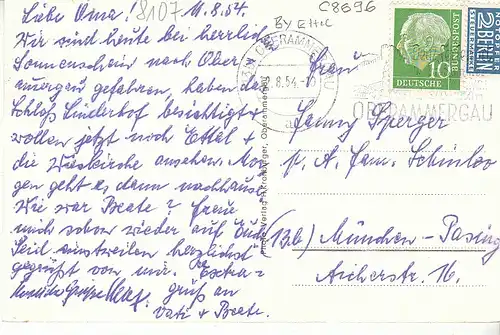 Liebe Oma! 11.8.54
8107
Wir sind heute bei herrlich.
Sonnenschein nach Ober
ammergau gefahren, haben das
Schloß Linderhof besichtigt &
wollen jetzt noch Ettal &
die Wieskirche ansehen. Mor
gen geht es dann nachhause.
Wie war Beate? Freue
mich schon wieder auf Euch.
Seid einstweilen herzlichst
gegrüßt von mir. Extra-
gruß an
Vati & Beate.
C8696
BY ETTC
OBERAMMERGAU
8.54
OBERAMMERGAU
DEUTSCHE BUNDESPOST
10
NOTOPFER
2 BERLIN
STEUERMARKE
Frau
Fanny Sperger
p. A. Fam. Schinlov
(13b) München-Pasing
Aicherstr. 16.